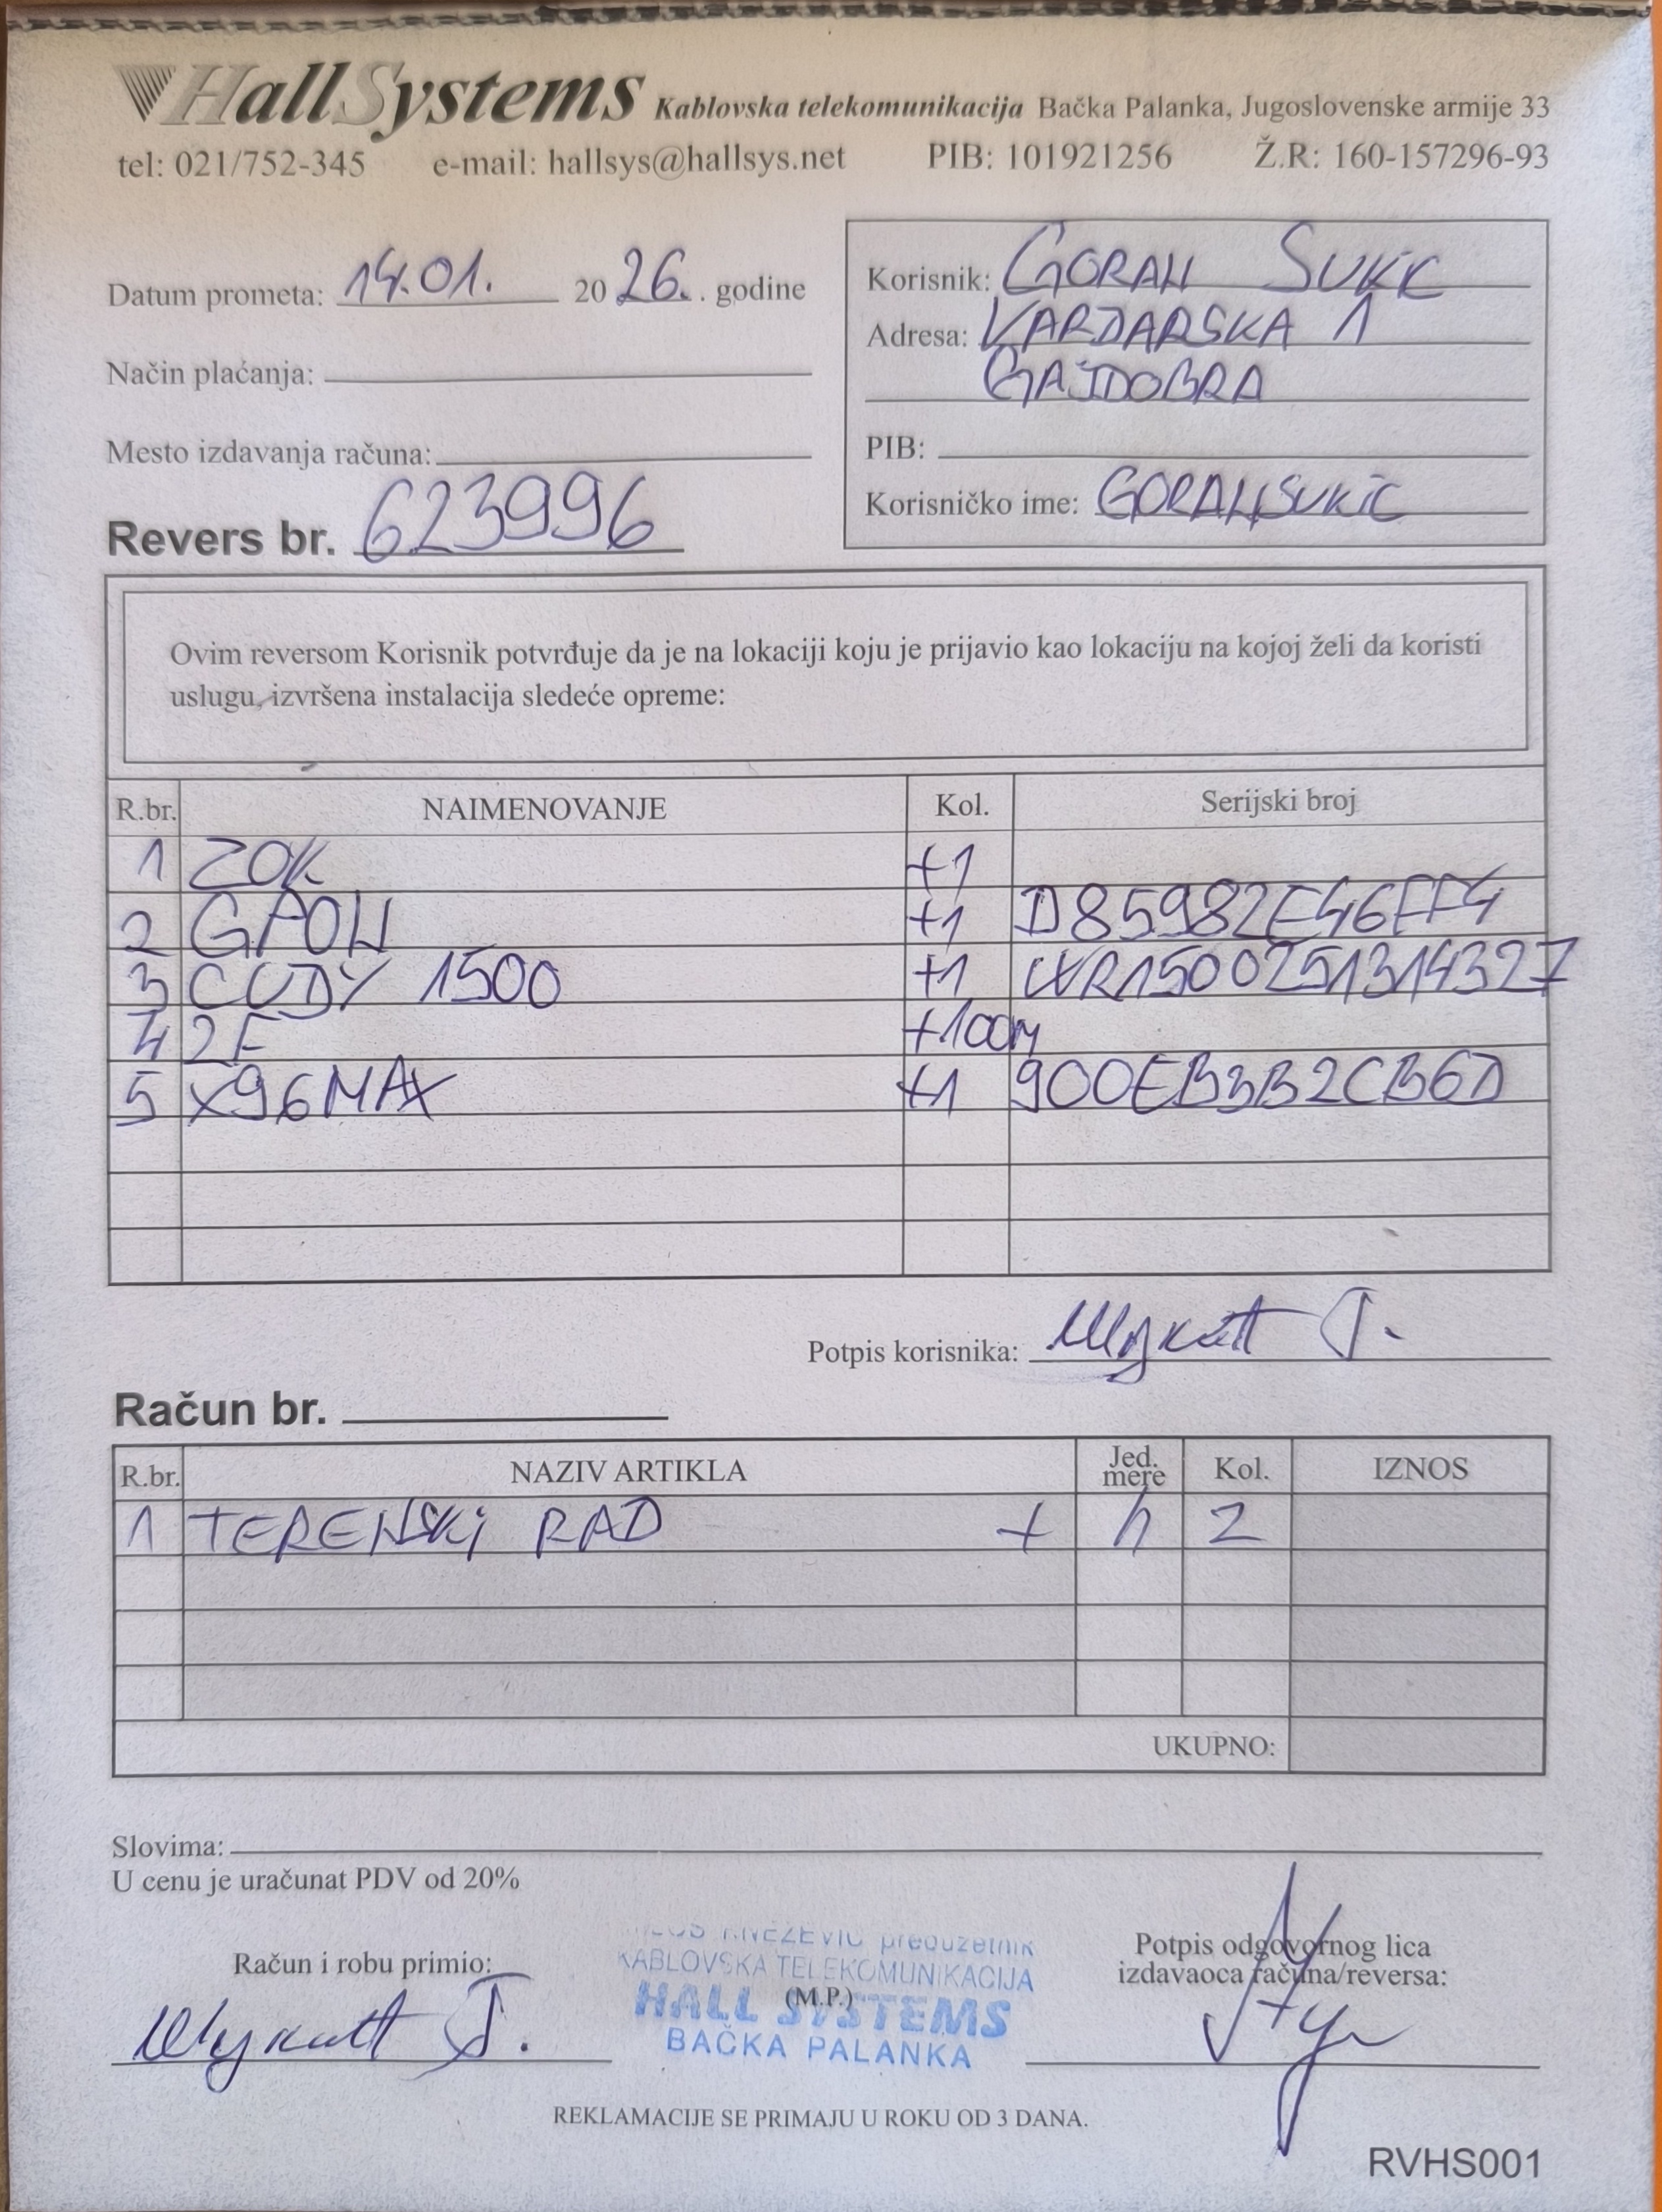 HallSystems Kablovska telekomunikacija Bačka Palanka, Jugoslovenske armije 33
tel: 021/752-345 e-mail: hallsys@hallsys.net PIB: 101921256 Ž.R: 160-157296-93
Datum prometa: 14.01. 2026. godine
Način plaćanja:
Mesto izdavanja računa:
Revers br. 623996
Korisnik: GORAN SUKIC
Adresa: VARDARSKA 1
GAJDOBRA
PIB:
Korisničko ime: GORANSUKIC
Ovim reversom Korisnik potvrđuje da je na lokaciji koju je prijavio kao lokaciju na kojoj želi da koristi
uslugu, izvršena instalacija sledeće opreme:
R.br. NAIMENOVANJE Kol. Serijski broj
1 ZOK +1
2 GPON +1 D85982E46FF4
3 CUDY 1500 +1 WR1500251314327
4 2F +100M
5 X96MAX +1 900EB3B2CB6D
Potpis korisnika:
Račun br.
R.br. NAZIV ARTIKLA Jed. mere Kol. IZNOS
1 TERENSKI RAD + h 2
UKUPNO:
Slovima:
U cenu je uračunat PDV od 20%
Račun i robu primio:
KNEŽEVIĆ preduzetnik
KABLOVSKA TELEKOMUNIKACIJA
(M.P.)
HALL SYSTEMS
BAČKA PALANKA
Potpis odgovornog lica
izdavaoca računa/reversa:
REKLAMACIJE SE PRIMAJU U ROKU OD 3 DANA.
RVHS001